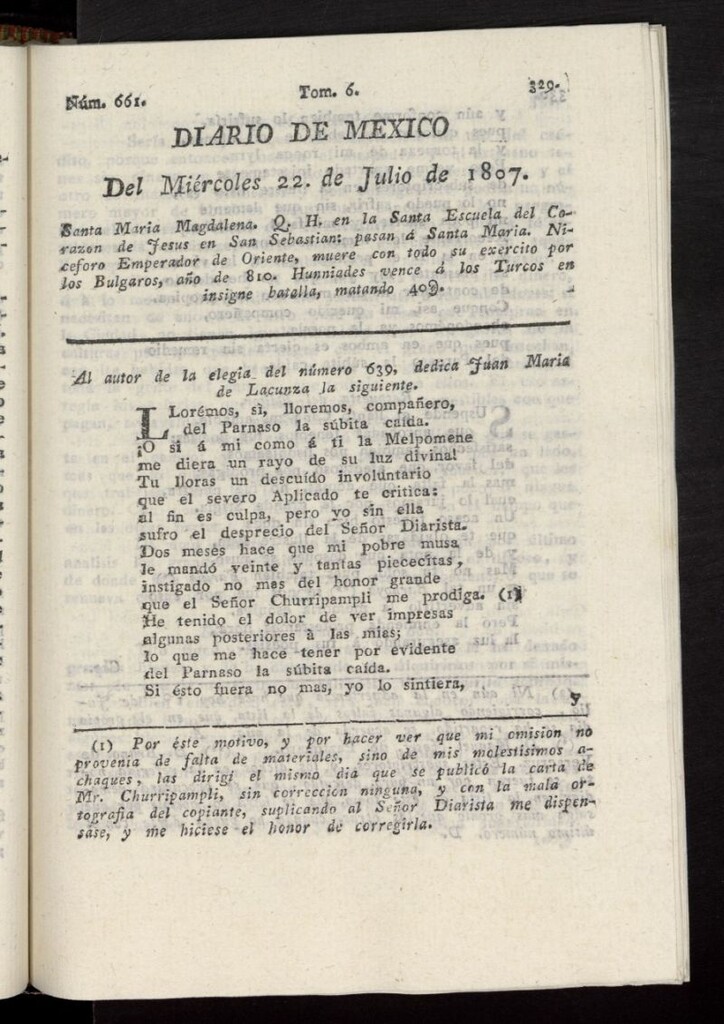 Núm. 661. Tom. 6. 329.
DIARIO DE MEXICO
Del Miércoles 22. de Julio de 1807.
Santa Maria Magdalena. Q. H. en la Santa Escuela del Co-
razon de Jesus en San Sebastian: pasan á Santa Maria. Ni-
ceforo Emperador de Oriente, muere con todo su exercito por
los Bulgaros, año de 810. Hunniades vence á los Turcos en
insigne batalla, matando 40@.
Al autor de la elegia del número 639, dedica Juan Maria
de Lacunza la siguiente.
LLorémos, sì, lloremos, compañero,
del Parnaso la súbita caída.
¡O si á mi como á ti la Melpomene
me diera un rayo de su luz divina!
Tu lloras un descuído involuntario
que el severo Aplicado te critica:
al fin es culpa, pero yo sin ella
sufro el desprecio del Señor Diarista.
Dos meses hace que mi pobre musa
le mandó veinte y tantas piececitas,
instigado no mas del honor grande
que el Señor Churripampli me prodiga. (1)
He tenido el dolor de ver impresas
algunas posteriores à las mias;
lo que me hace tener por evidente
del Parnaso la súbita caída.
Si ésto fuera no mas, yo lo sintiera,
y
(1) Por éste motivo, y por hacer ver que mi omision no
provenia de falta de materiales, sino de mis molestisimos a-
chaques, las dirigí el mismo dia que se publicó la carta de
Mr. Churripampli, sin corrección ninguna, y con la mala or-
tografia del copiante, suplicando al Señor Diarista me dispen-
sáse, y me hiciese el honor de corregirla.